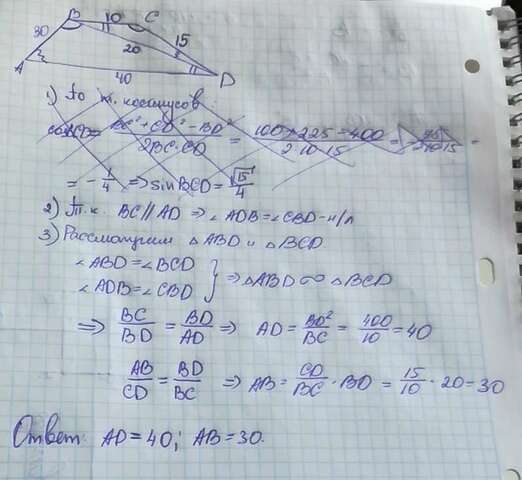 B 10 C
30 20 15
A 40 D
1) по т. косинусов:
cosBCD = BC² + CD² - BD² / 2BC·CD = 100 + 225 - 400 / 2·10·15 = =
= - 1/4 ⇒ sinBCD = √15/4
2) т.к. BC // AD ⇒ ∠ADB = ∠CBD - н/л
3) Рассмотрим △ABD и △BCD
∠ABD = ∠BCD
∠ADB = ∠CBD } ⇒ △ABD ∾ △BCD
⇒ BC/BD = BD/AD ⇒ AD = BD²/BC = 400/10 = 40
AB/CD = BD/BC ⇒ AB = CD/BC · BD = 15/10 · 20 = 30
Ответ: AD = 40; AB = 30.